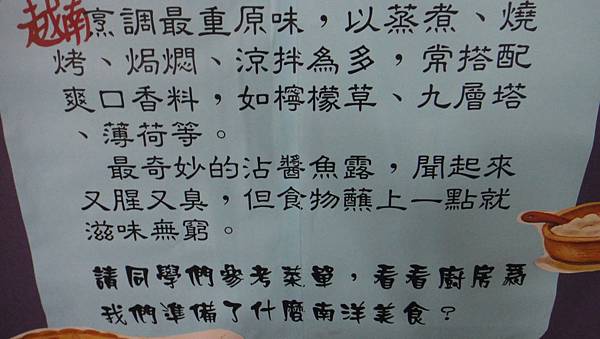 越南烹調最重原味，以蒸煮、燒
烤、焗燜、涼拌為多，常搭配
爽口香料，如檸檬草、九層塔
、薄荷等。
最奇妙的沾醬魚露，聞起來
又腥又臭，但食物蘸上一點就
滋味無窮。
請同學們參考菜單，看看廚房為
我們準備了什麼南洋美食？